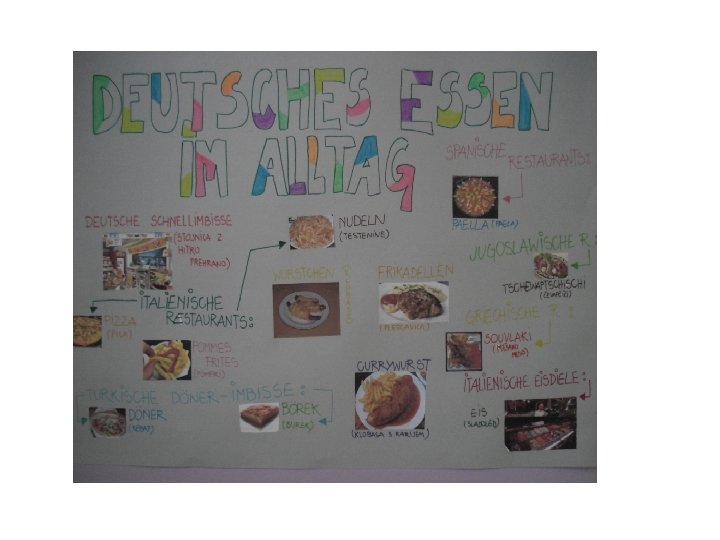 DEUTSCHES ESSEN
IM ALLTAG
SPANISCHE
RESTAURANTS:
PAELLA (PAELA)
DEUTSCHE SCHNELLIMBISSE
(STOJNICA Z
HITRO
PREHRANO)
NUDELN
(TESTENINE)
JUGOSLAWISCHE R:
TSCHEWAPTSCHISCHI
(ČEVAPČIČI)
ITALIENISCHE
RESTAURANTS:
PIZZA
(PICA)
WÜRSTCHEN
FRIKADELLEN
(PLESKAVICA)
GRIECHISCHE R:
SOUVLAKI
(MEŠANO
MESO)
POMMES
FRITES
(POMFRI)
CURRYWURST
(KLOBASA S KARIJEM)
ITALIENISCHE EISDIELE:
EIS
(SLADOLED)
TÜRKISCHE DÖNER-IMBISSE:
DÖNER
(KEBAP)
BÖREK
(BUREK)